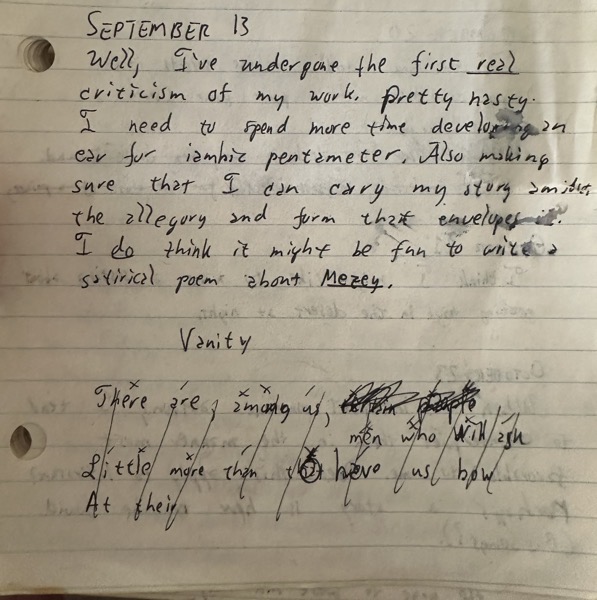 SEPTEMBER 13
Well, I've undergone the first real
criticism of my work. Pretty nasty.
I need to spend more time developing an
ear for iambic pentameter. Also making
sure that I can carry my story amidst
the allegory and form that envelopes it.
I do think it might be fun to write a
satirical poem about Mezey.
Vanity
There are, among us,
men who will ask
Little more than to have us bow
At their